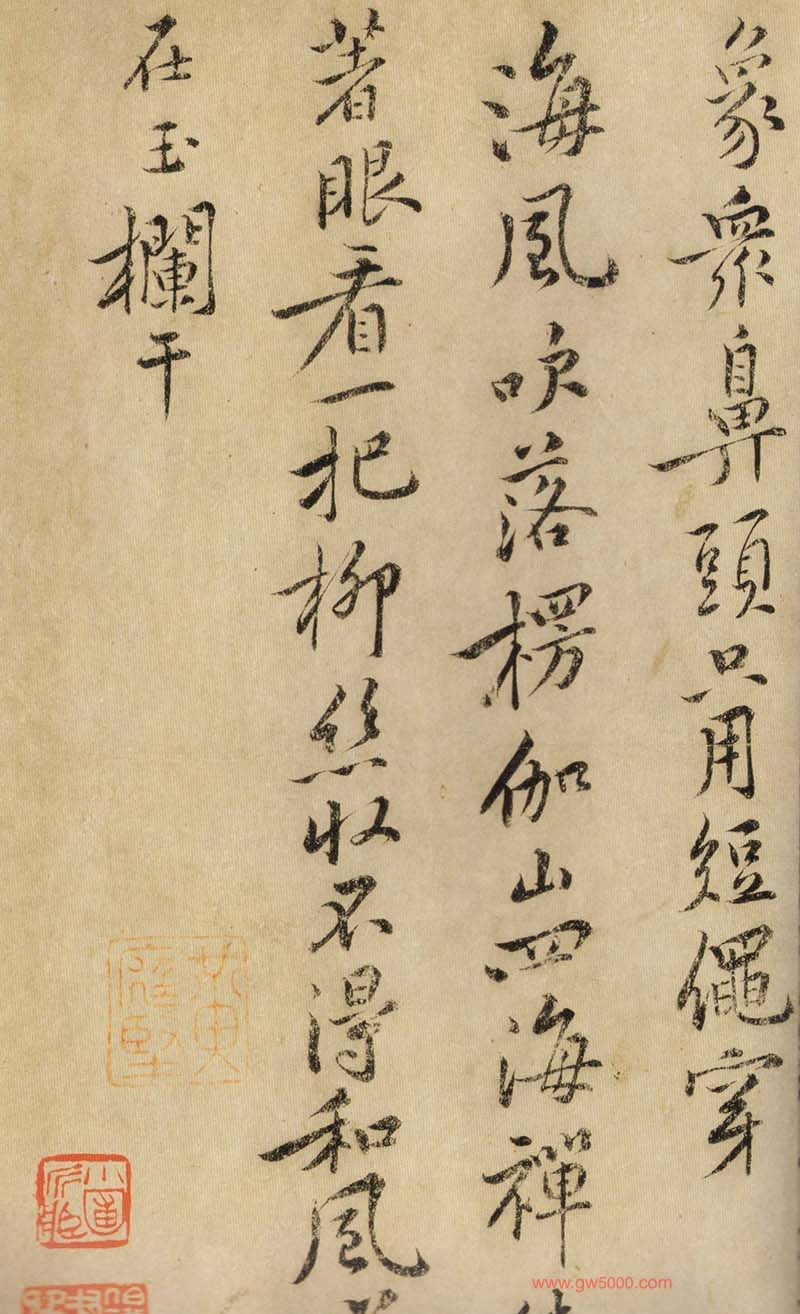 象衆鼻頭只用短繩穿
海風吹落楞伽山四海禪
著眼看一把柳絲收不得和風
在玉欄干
www.gw5000.com